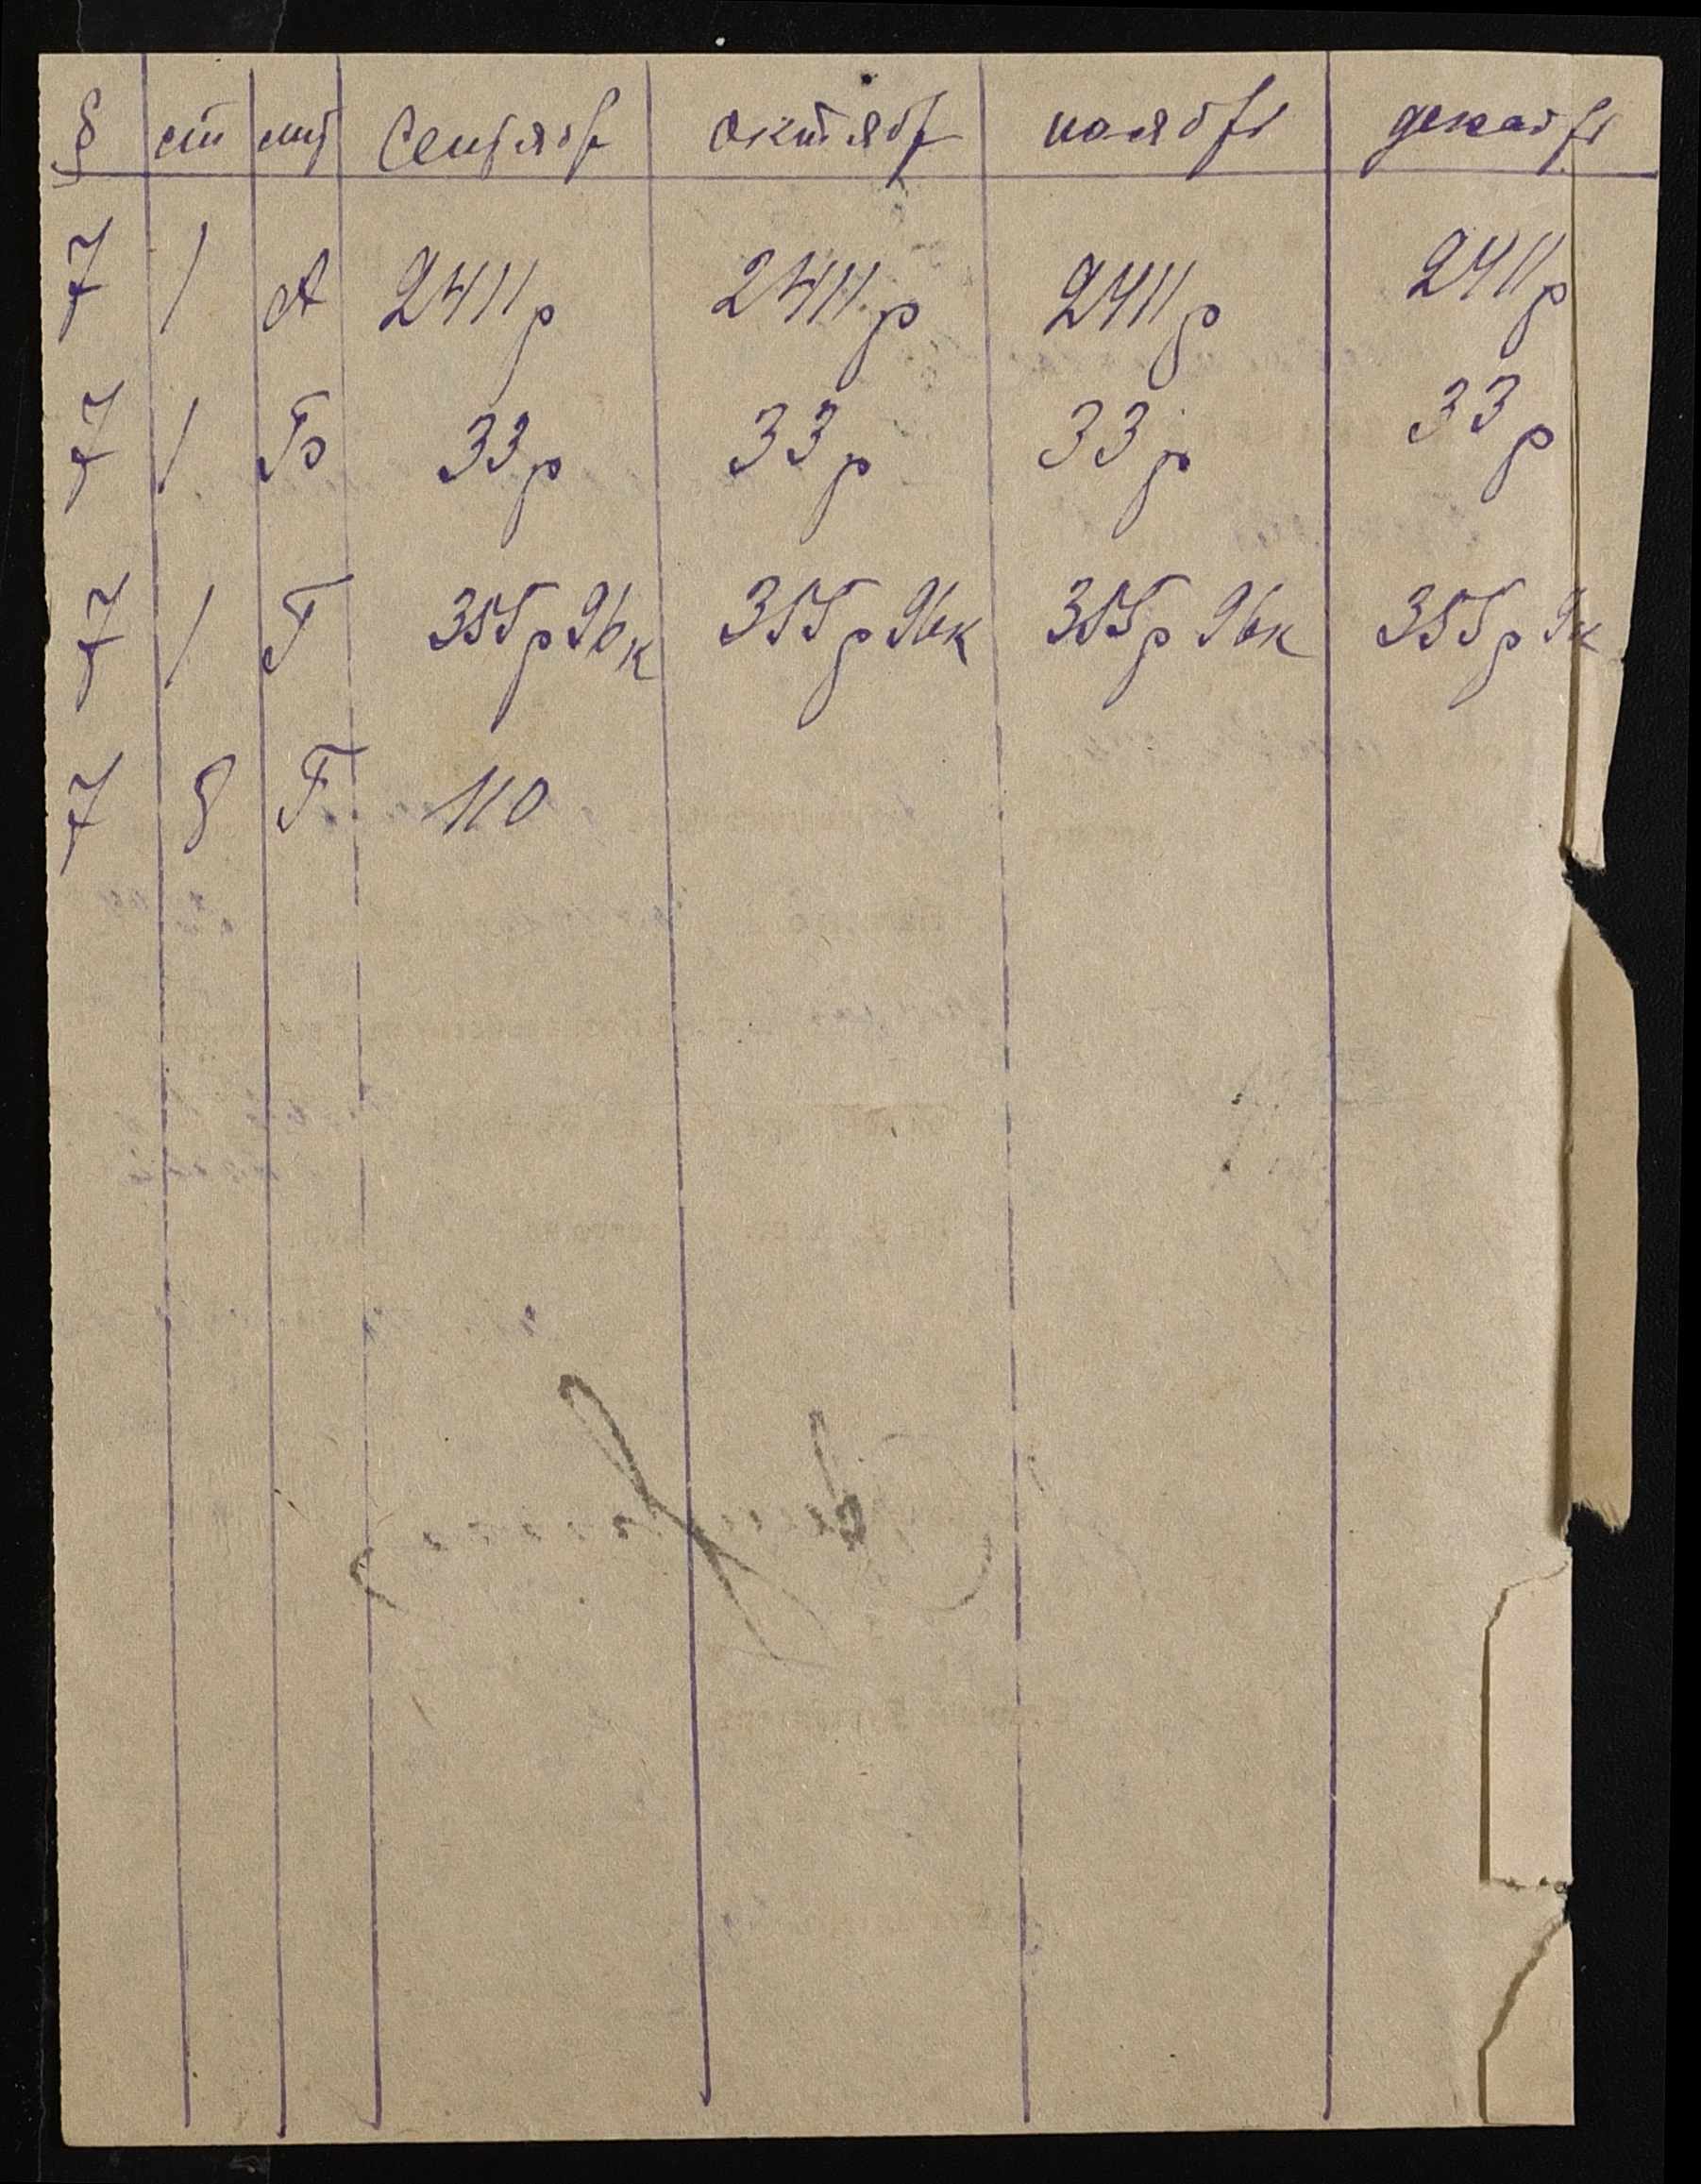 § ст лит Сентябрь октябрь ноябрь декабрь
7 1 А 2411р 2411р 2411р 2411р
7 1 Б 33р 33р 33р 33р
7 1 Г 355р 96к 355р 96к 355р 96к 355р 9к
7 8 Г 110